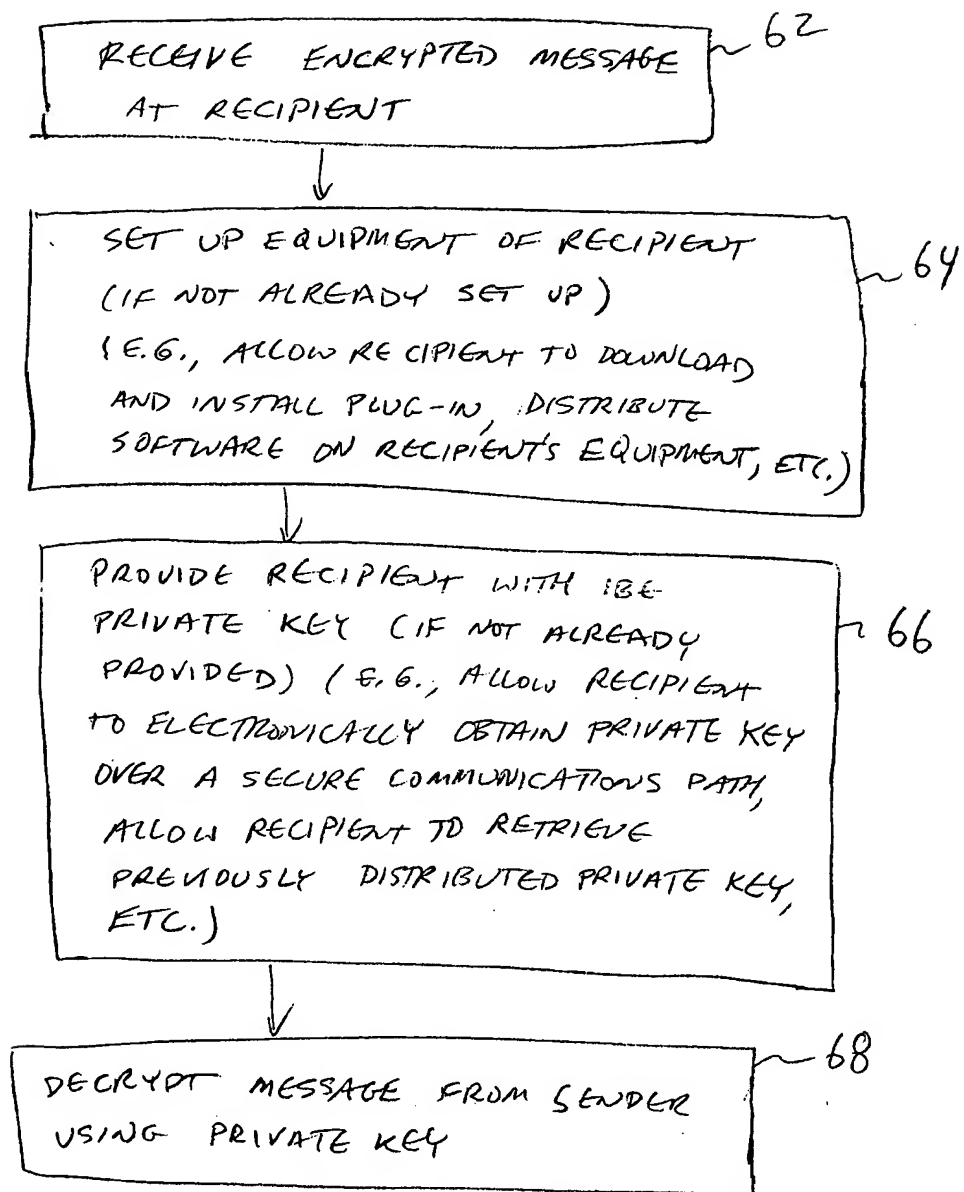 RECEIVE ENCRYPTED MESSAGE
AT RECIPIENT
62
SET UP EQUIPMENT OF RECIPIENT
(IF NOT ALREADY SET UP)
(E.G., ALLOW RECIPIENT TO DOWNLOAD
AND INSTALL PLUG-IN, DISTRIBUTE
SOFTWARE ON RECIPIENT'S EQUIPMENT, ETC.)
64
PROVIDE RECIPIENT WITH IBE
PRIVATE KEY (IF NOT ALREADY
PROVIDED) (E.G., ALLOW RECIPIENT
TO ELECTRONICALLY OBTAIN PRIVATE KEY
OVER A SECURE COMMUNICATIONS PATH,
ALLOW RECIPIENT TO RETRIEVE
PREVIOUSLY DISTRIBUTED PRIVATE KEY,
ETC.)
66
DECRYPT MESSAGE FROM SENDER
USING PRIVATE KEY
68